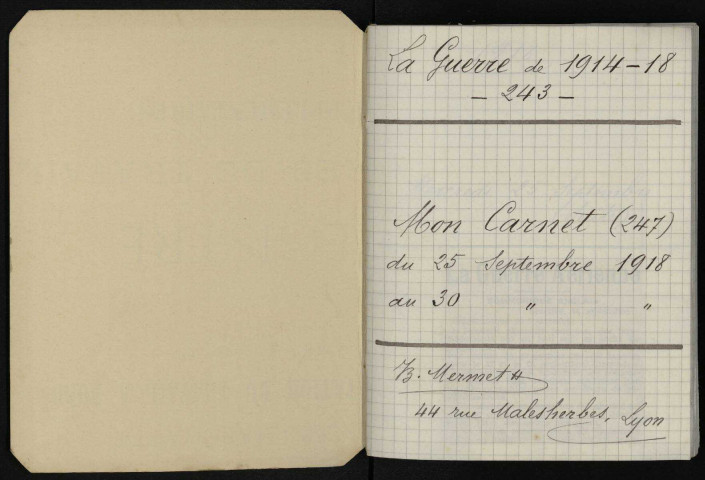 La Guerre de 1914-18
- 243 -
Mon Carnet (247)
du 25 Septembre 1918
au 30 " "
B. Mermet
44 rue Malesherbes, Lyon